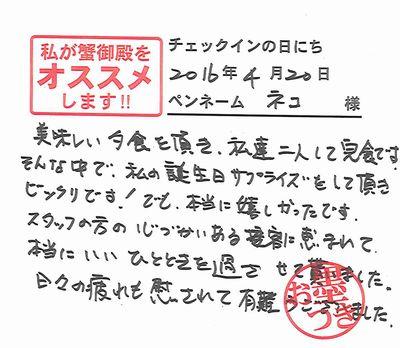 私が蟹御殿を
オススメ
します!!
チェックインの日にち
2016年4月20日
ペンネーム ネコ 様
美味しい夕食を頂き、私達二人して完食です。
そんな中で、私の誕生日サプライズをして頂き
ビックリです!でも、本当に嬉しかったです。
スタッフの方の心づかいある接客に恵まれて、
本当にいいひとときを過ごさせて貰いました。
日々の疲れも慰されて有難うございました。
お墨つき